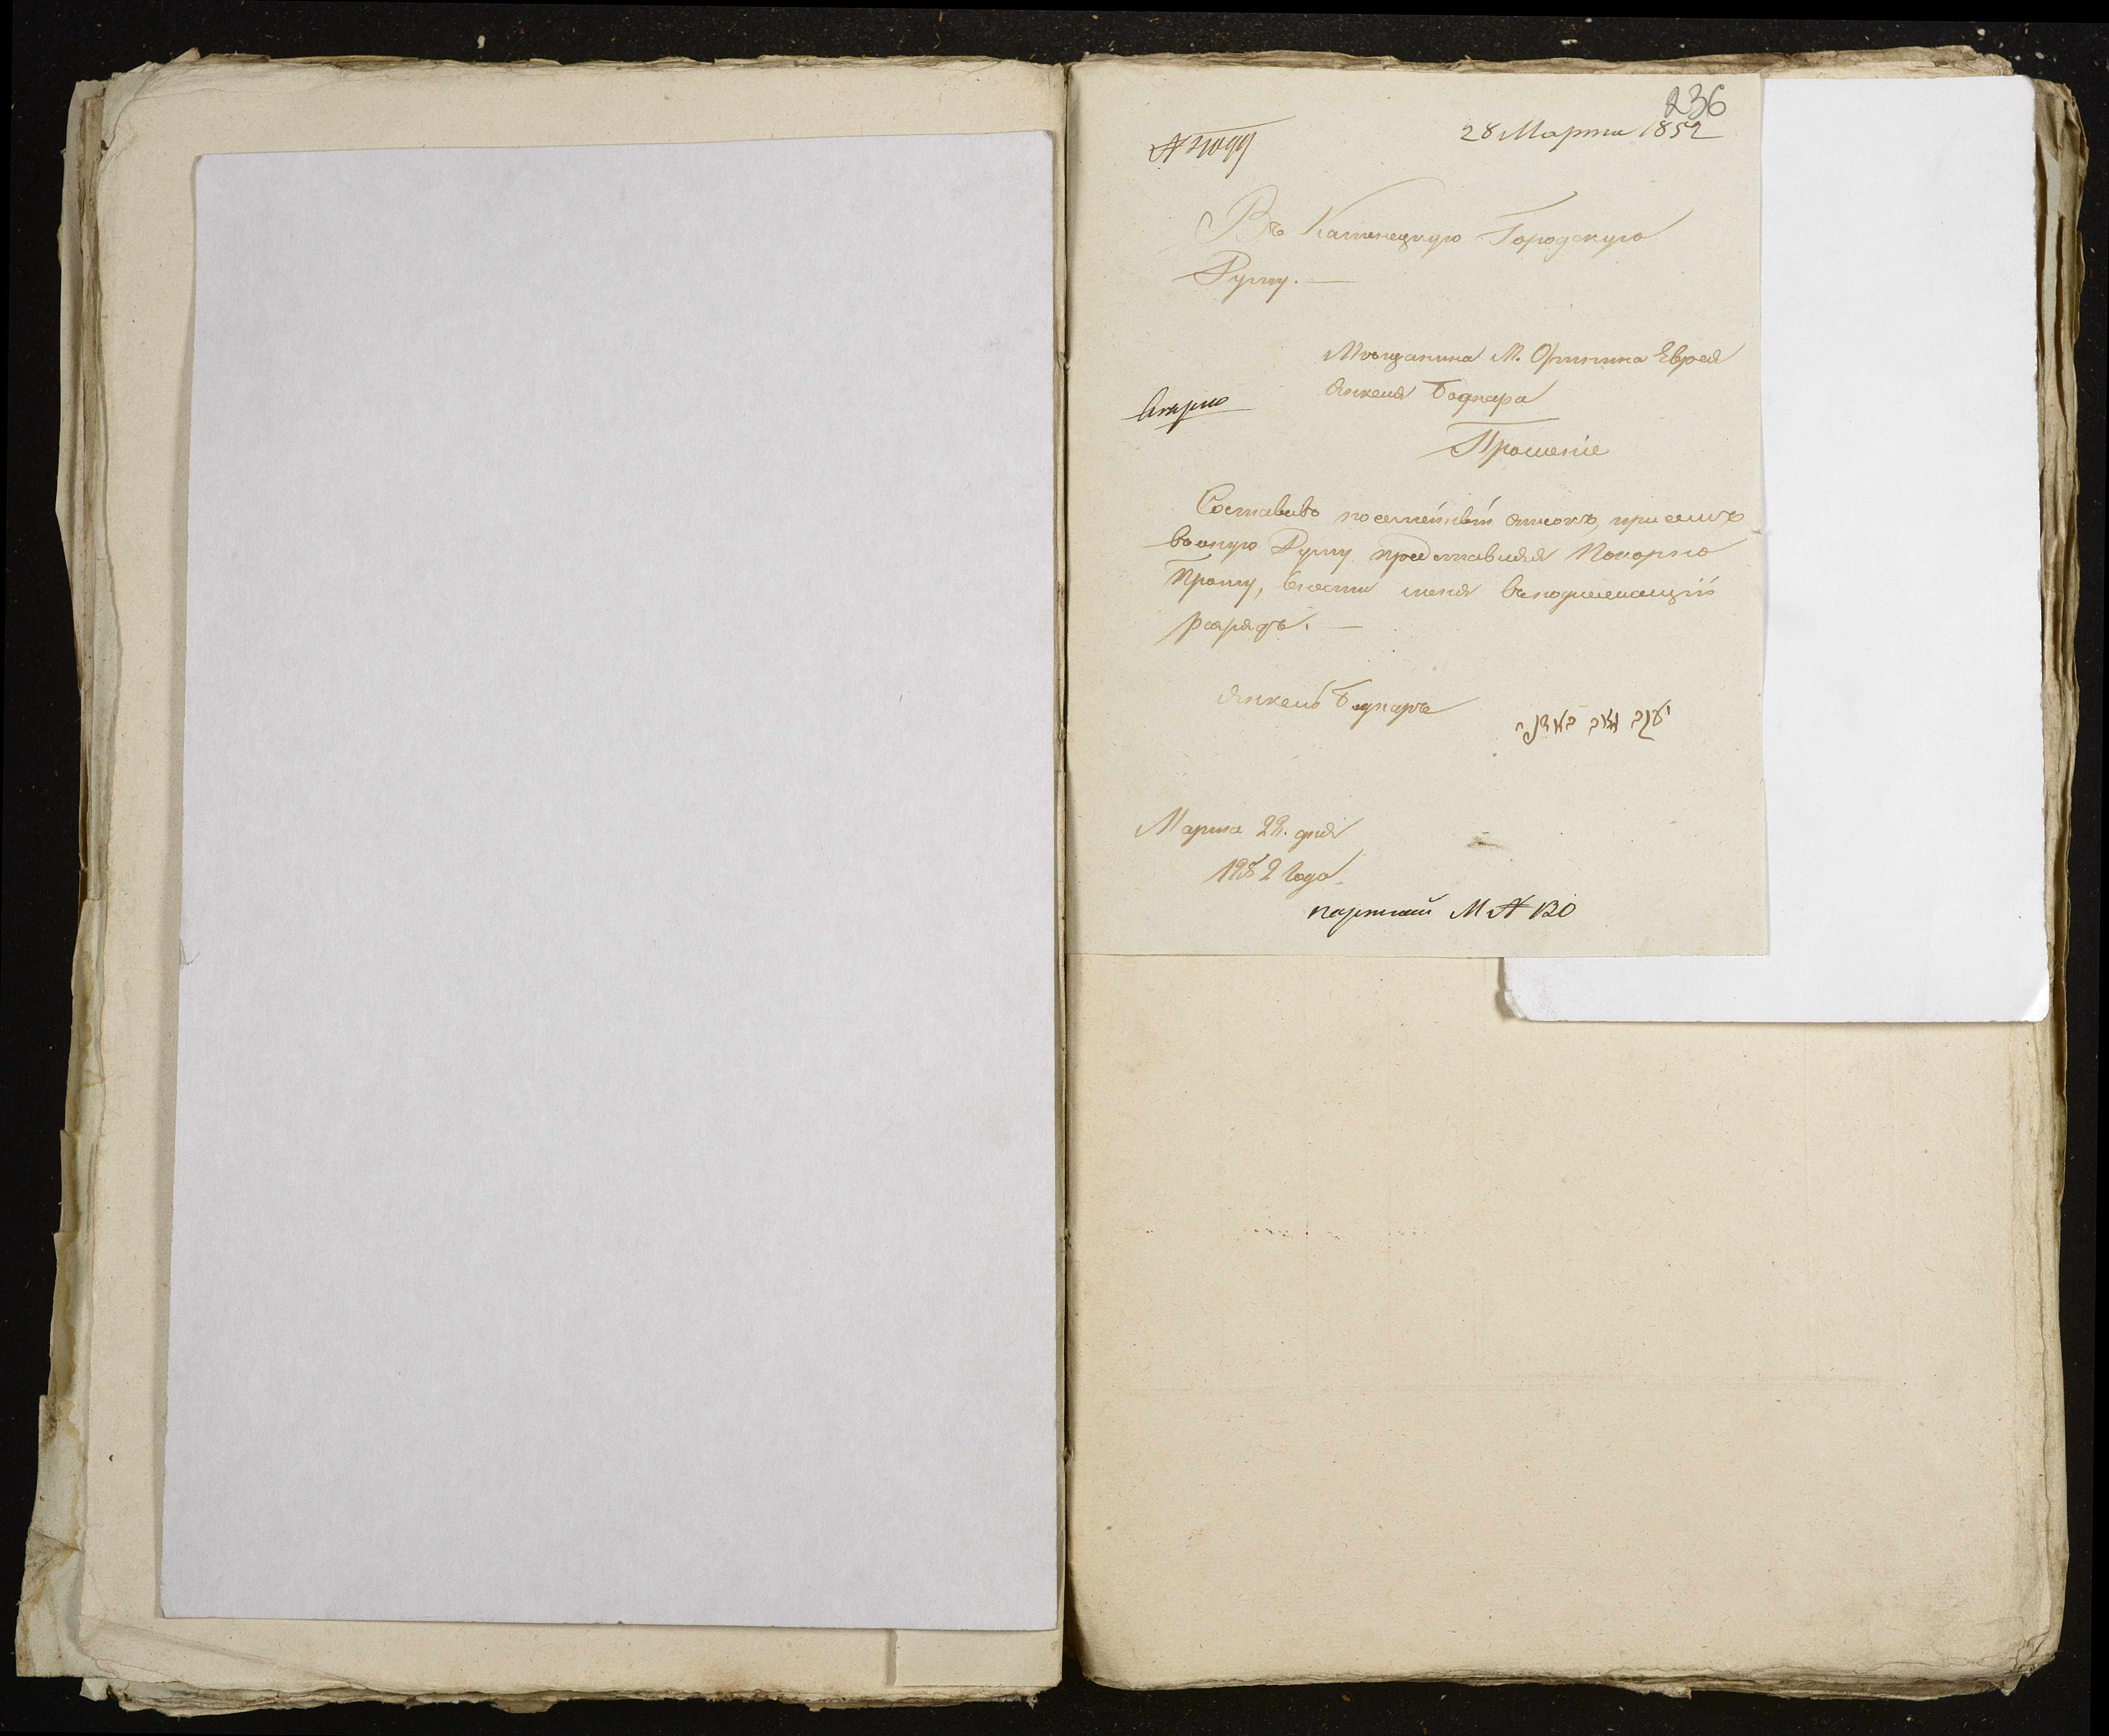 236
28 Марта 1852
Въ Каменецкую Городскую
Думу. —
Мѣщанина М. Оринина Еврея
Янкеля Боднара
Прошеніе
Составивъ посемейный списокъ, при семъ
во оную Думу представляя Покорно
Прошу, внести меня въ подлежащій
разрядъ. —
Янкель Боднаръ
יעקב באדנר
Марта 29. дня
1852 Года
№ 130